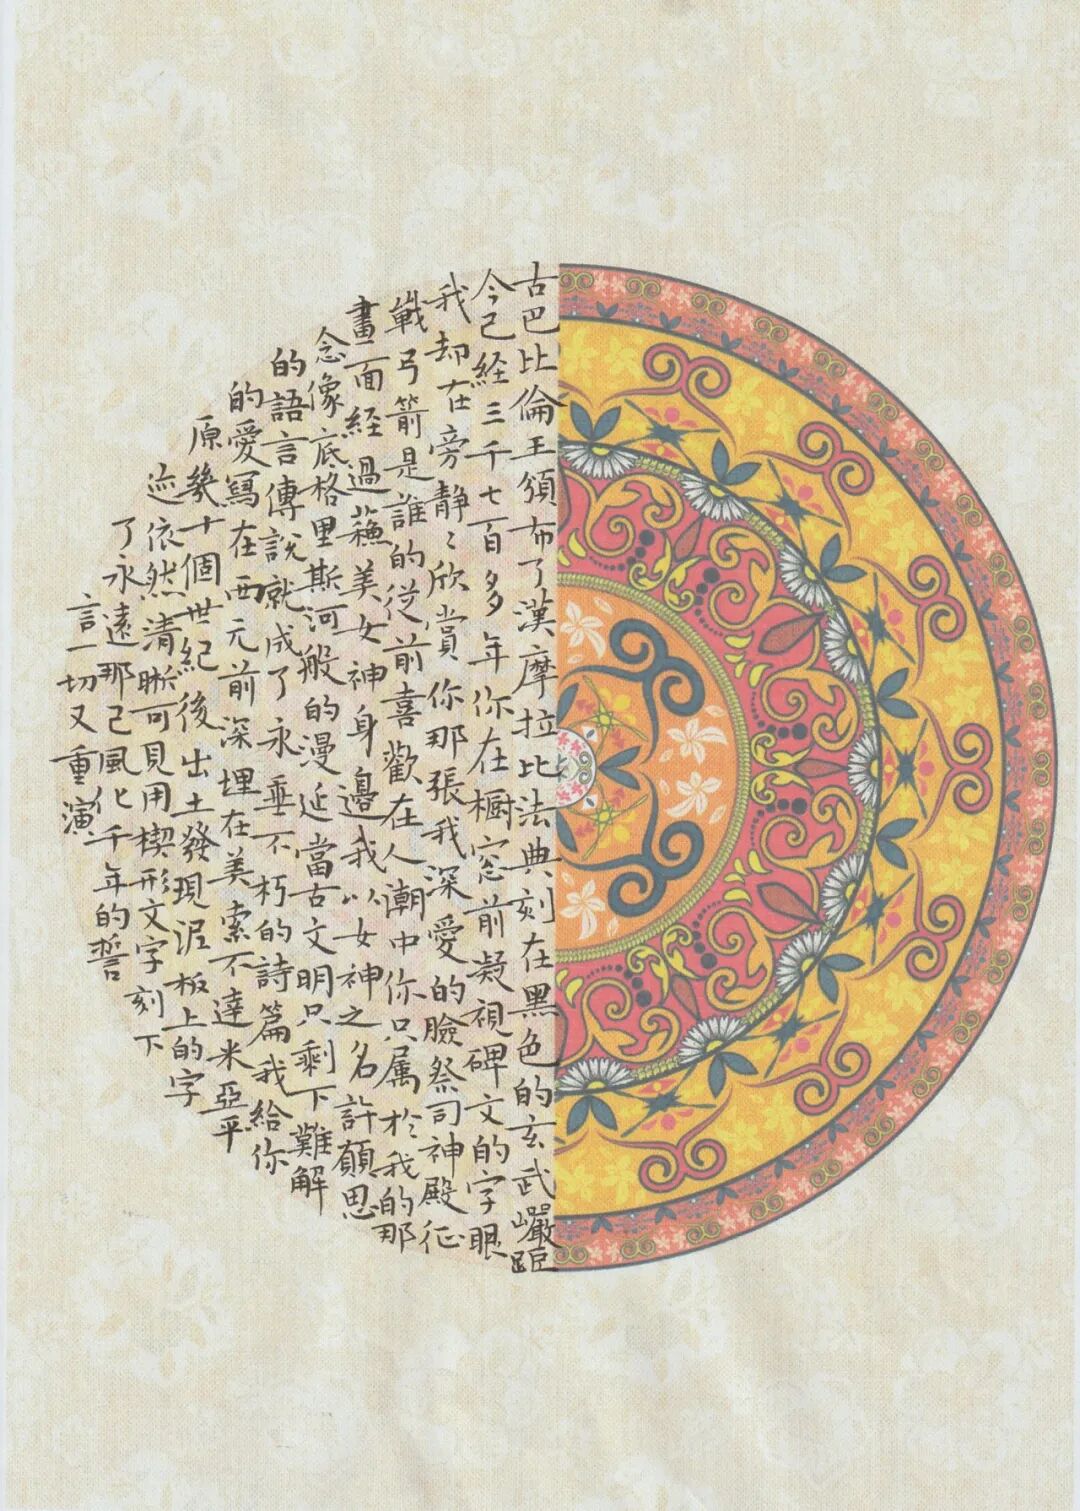 古巴比倫王頒布了漢摩拉比法典刻在黑色的玄武巖距
今已経三千七百多年你在橱窓前凝視碑文的字眼
我却在旁静〻欣賞你那張我深愛的臉祭司神殿征
戰弓箭是誰的従前喜歡在人潮中你只属於我的那
畫面経過蘇美女神身邊我以女神之名許願思
念像底格里斯河般的漫延當古文明只剩下難解
的語言傳說就成了永垂不朽的詩篇我給你
的愛寫在西元前深埋在美索不達米亞平
原幾十個世紀後出土發現泥板上的字
迹依然清晰可見用楔形文字刻下
了永遠那已風化千年的誓
言一切又重演